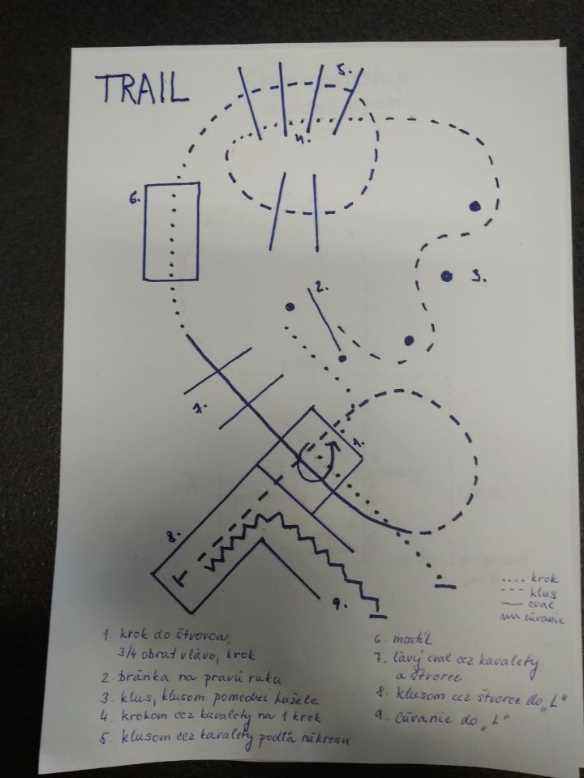 TRAIL
5.
4.
6.
2.
3.
7.
1.
8.
9.
.... krok
--- klus
— cval
cúvanie
1. krok do štvorca,
3/4 obrat vľavo, krok
2. bránka na pravú ruku
3. klus, klusom pomedzi kužele
4. krokom cez kavalety na 1 krok
5. klusom cez kavalety podľa nákresu
6. mostík
7. ľavý cval cez kavalety
a štvorec
8. klusom cez štvorec do „L"
9. cúvanie do „L"